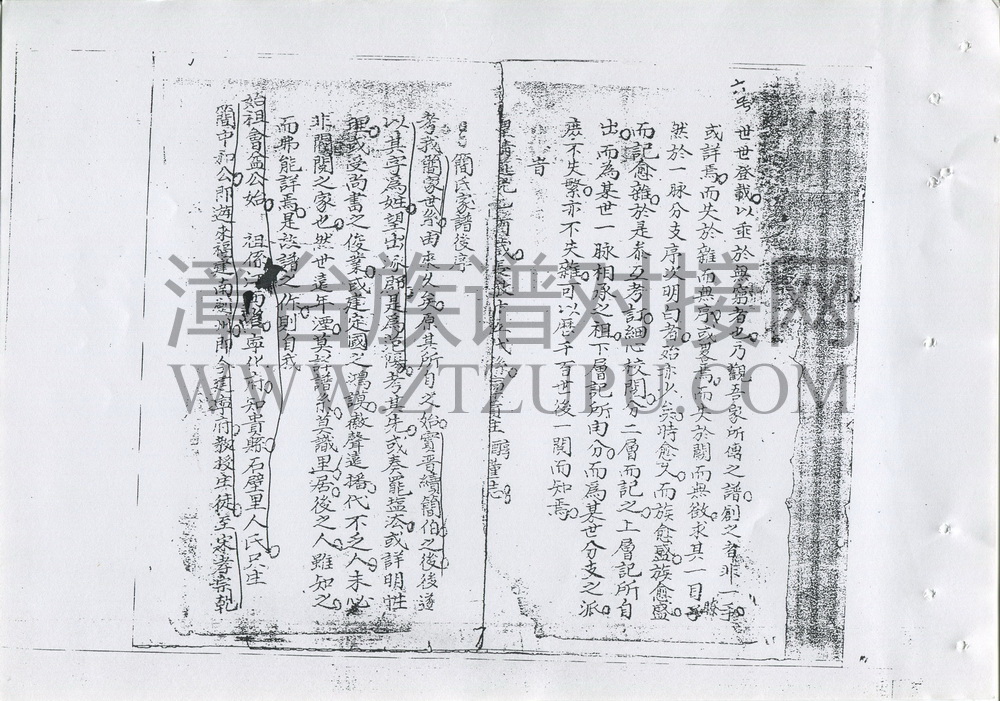 世世登載以垂於無窮者也乃觀吾家所傳之譜創之者非一手
或詳焉而失於雜而無序或畧焉而失於闕而無徵求其一目瞭
然於一脉分支序次明白者始亦以無時愈久而族愈盛族愈盛
而記愈雜於是叅互考訂細心校閱分二層而記之上層記所自
出而為某世一脉相承之祖下層記所由分而為某世分支之派
庶不失繁亦不失雜可以歷千百世後一閱而知焉
旹
簡氏家譜後序
考我簡家世系由來久矣原其所自之始實晋續簡伯之後後遂
以其字為姓望出涿郡是為范陽考其先或奏罷塩法或詳明性
理或受尚書之俊業或建定國之鴻謨徽聲遠播代不乏人未必
非閥閱之家也然世遠年湮莫於譜系莫識里居後之人雖知之
而弗能詳焉是該譜之作則自我
始祖會益公始 祖係江西 寧化府知貴縣石壁里人氏只庄
簡中和公即遊來福建南劍州即今建寧府教授庄徒至宋孝宗乾
漳台族谱对接网
WWW.ZTZUPU.COM